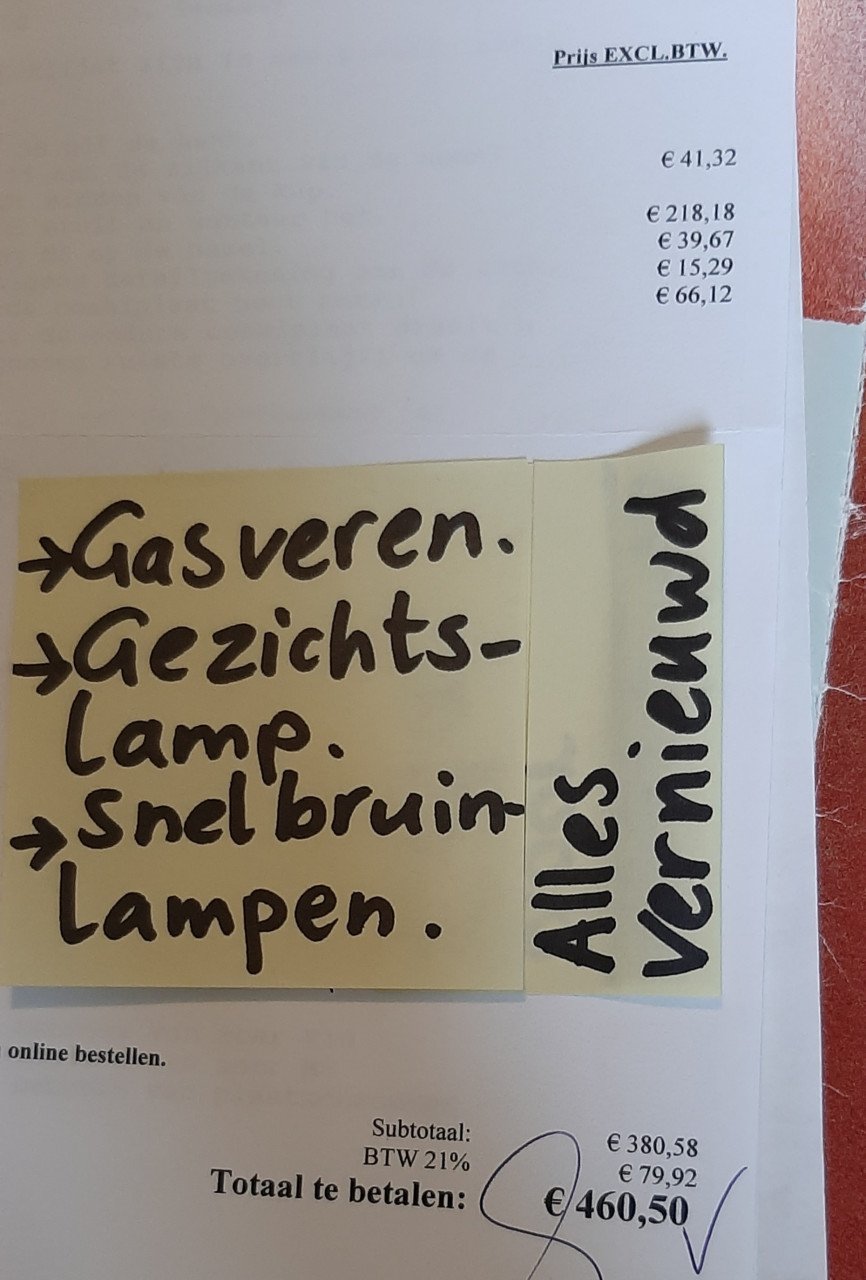 Prijs EXCL.BTW.
€ 41,32
€ 218,18
€ 39,67
€ 15,29
€ 66,12
→Gasveren.
→Gezichts-
lamp.
→snelbruin-
lampen.
Alles
vernieuwd
online bestellen.
Subtotaal: € 380,58
BTW 21% € 79,92
Totaal te betalen: € 460,50